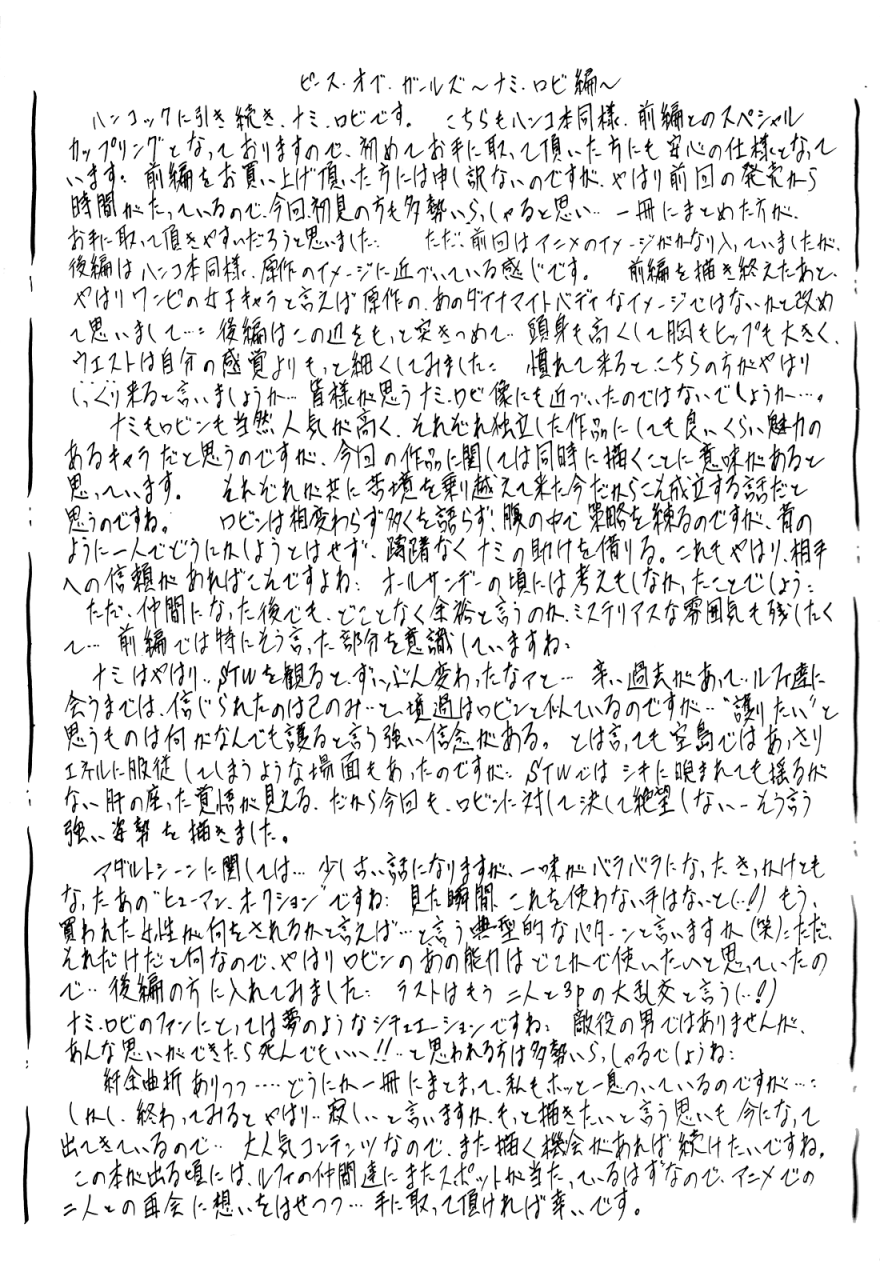 ピース・オブ・ガールズ～ナミ・ロビ編～
ハンコックに引き続き、ナミ・ロビです。 こちらもハンコ本同様、前編とのスペシャル
カップリングとなっておりますので、初めてお手に取って頂いた方にも安心の仕様となって
います。前編をお買い上げ頂いた方には申し訳ないのですが、やはり前回の発売から
時間がたっているので、今回初見の方も多勢いらっしゃると思い… 一冊にまとめた方が、
お手に取って頂きやすいだろうと思いました… ただ、前回はアニメのイメージがかなり入っていましたが、
後編はハンコ本同様、原作のイメージに近づいている感じです。 前編を描き終えたあと、
やはりワンピの女子キャラと言えば原作の、あのダイナマイトバディなイメージではないかと改め
て思いまして…： 後編はこの辺をもっと突きつめて… 頭身も高くして胸もヒップも大きく、
ウエストは自分の感覚よりもっと細くしてみました： 慣れて来ると、こちらの方がやはり
しっくり来ると言いましょうか… 皆様が思うナミ・ロビ像にも近づいたのではないでしょうか…。
ナミもロビンも当然人気が高く、それぞれ独立した作品にしても良いくらい魅力の
あるキャラだと思うのですが、今回の作品に関しては同時に描くことに意味があると
思っています。 それぞれが共に苦境を乗り越えて来た今だからこそ成立する話だと
思うのですね。 ロビンは相変わらず多くを語らず、腹の中で策略を練るのですが、昔の
ように一人でどうにかしようとはせず、躊躇なくナミの助けを借りる。これもやはり、相手
への信頼があればこそですよね： オールサンデーの頃には考えもしなかったことでしょう：
ただ、仲間になった後でも、どことなく余裕と言うのか、ミステリアスな雰囲気も残したく
て… 前編では特にそう言った部分を意識していますね：
ナミはやはり… STWを観ると、ずいぶん変わったなァと… 辛い過去があって…ルフィ達に
会うまでは、信じられたのは己のみ…と、境遇はロビンと似ているのですが…“護りたい”と
思うものは何がなんでも護ると言う強い信念がある。とは言っても空島ではあっさり
エネルに服従してしまうような場面もあったのですが… STWではシキに睨まれても揺るが
ない肝の座った覚悟が見える、だから今回も、ロビンに対して決して絶望しない…そう言う
強い姿勢を描きました。
アダルトシーンに関しては… 少し古い話になりますが、一味がバラバラになった、きっかけとも
なったあの“ヒューマン・オクション”ですね： 見た瞬間、これを使わない手はないと(…!!) もう、
買われた女性が何をされるかと言えば…と言う典型的なパターンと言いますか(笑)：ただ、
それだけだと何なので、やはりロビンのあの能力はどこかで使いたいと思っていたの
で… 後編の方に入れてみました： ラストはもう二人と3Pの大乱交と言う(…!!)
ナミ・ロビのファンにとっては夢のようなシチュエーションですね： 敵役の男ではありませんが、
あんな思いができたら死んでもいい…!!…と思われる方は多勢いらっしゃるでしょうね：
紆余曲折ありつつ…… どうにか一冊にまとまって、私もホッと一息ついているのですが…：
しかし、終わってみるとやはり… 寂しいと言いますか、もっと描きたいと言う思いも今になって
出てきているので… 大人気コンテンツなので、また描く機会があれば続けたいですね。
この本が出る頃には、ルフィの仲間達にまたスポットが当たっているはずなので、アニメでの
二人との再会に想いをはせつつ… 手に取って頂ければ幸いです。